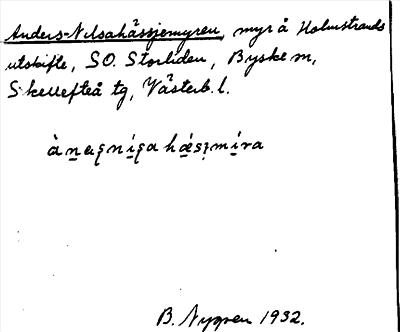 Anders-Nilsahässjemyren, myr å Holmstrands
utskifte, SO. Storliden, Byske sn,
Skellefteå tg, Västerb. l.
B. Nygren 1932.